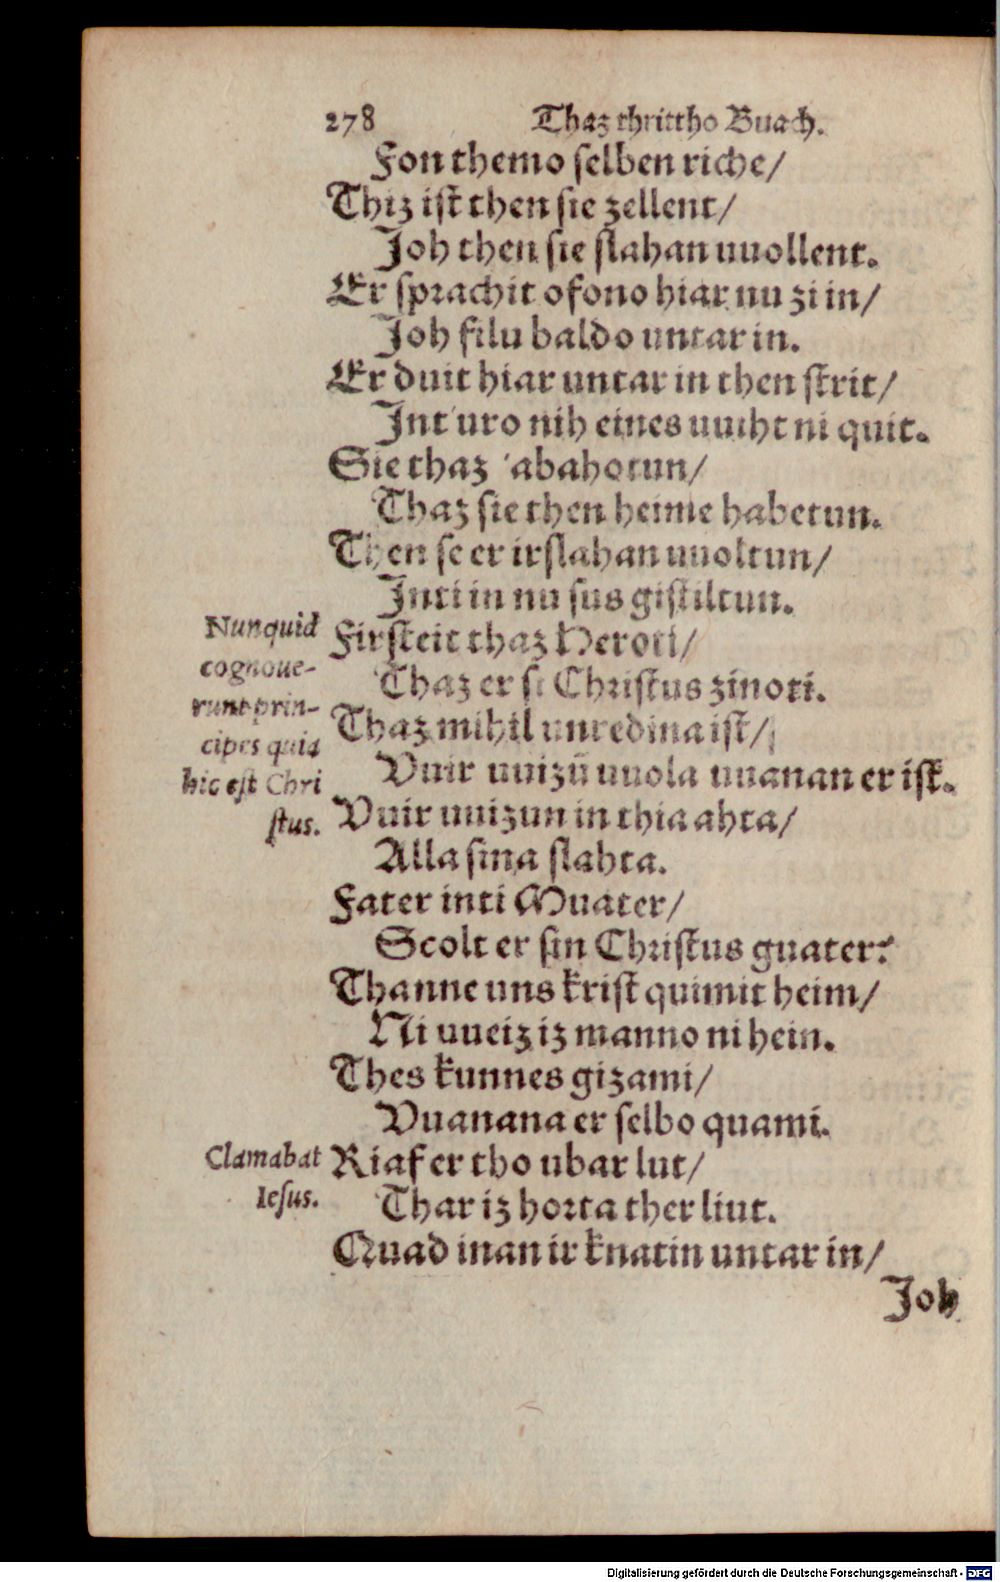 278 Thaz thrittho Buach.
Fon themo selben riche/
Thiz ist then sie zellent/
Joh then sie slahan uuollent.
Er sprachit ofono hiar nu zi in/
Joh filu baldo untar in.
Er duit hiar untar in then strit/
Int uro nih eines uuiht ni quit.
Sie thaz abahotun/
Thaz sie then heime habetun.
Then se er irslahan uuoltun/
Inti in nu sus gistiltun.
Nunquid
cognoue-
runt prin-
cipes quia
hic est Chri
stus.
Firsteit thaz Heroti/
Thaz er si Christus zinoti.
Thaz mihil unredina ist/
Vuir uuizū uuola uuanan er ist.
Vuir uuizun in thia ahta/
Alla sina slahta.
Fater inti Muater/
Scolt er sin Christus guater?
Thanne uns krist quimit heim/
Ni uueiz iz manno nihein.
Thes kunnes gizami/
Vuanana er selbo quami.
Clamabat
Iesus.
Riaf er tho ubar lut/
Thar iz horta ther liut.
Quad inan ir knatin untar in/
Joh
Digitalisierung gefördert durch die Deutsche Forschungsgemeinschaft - DFG